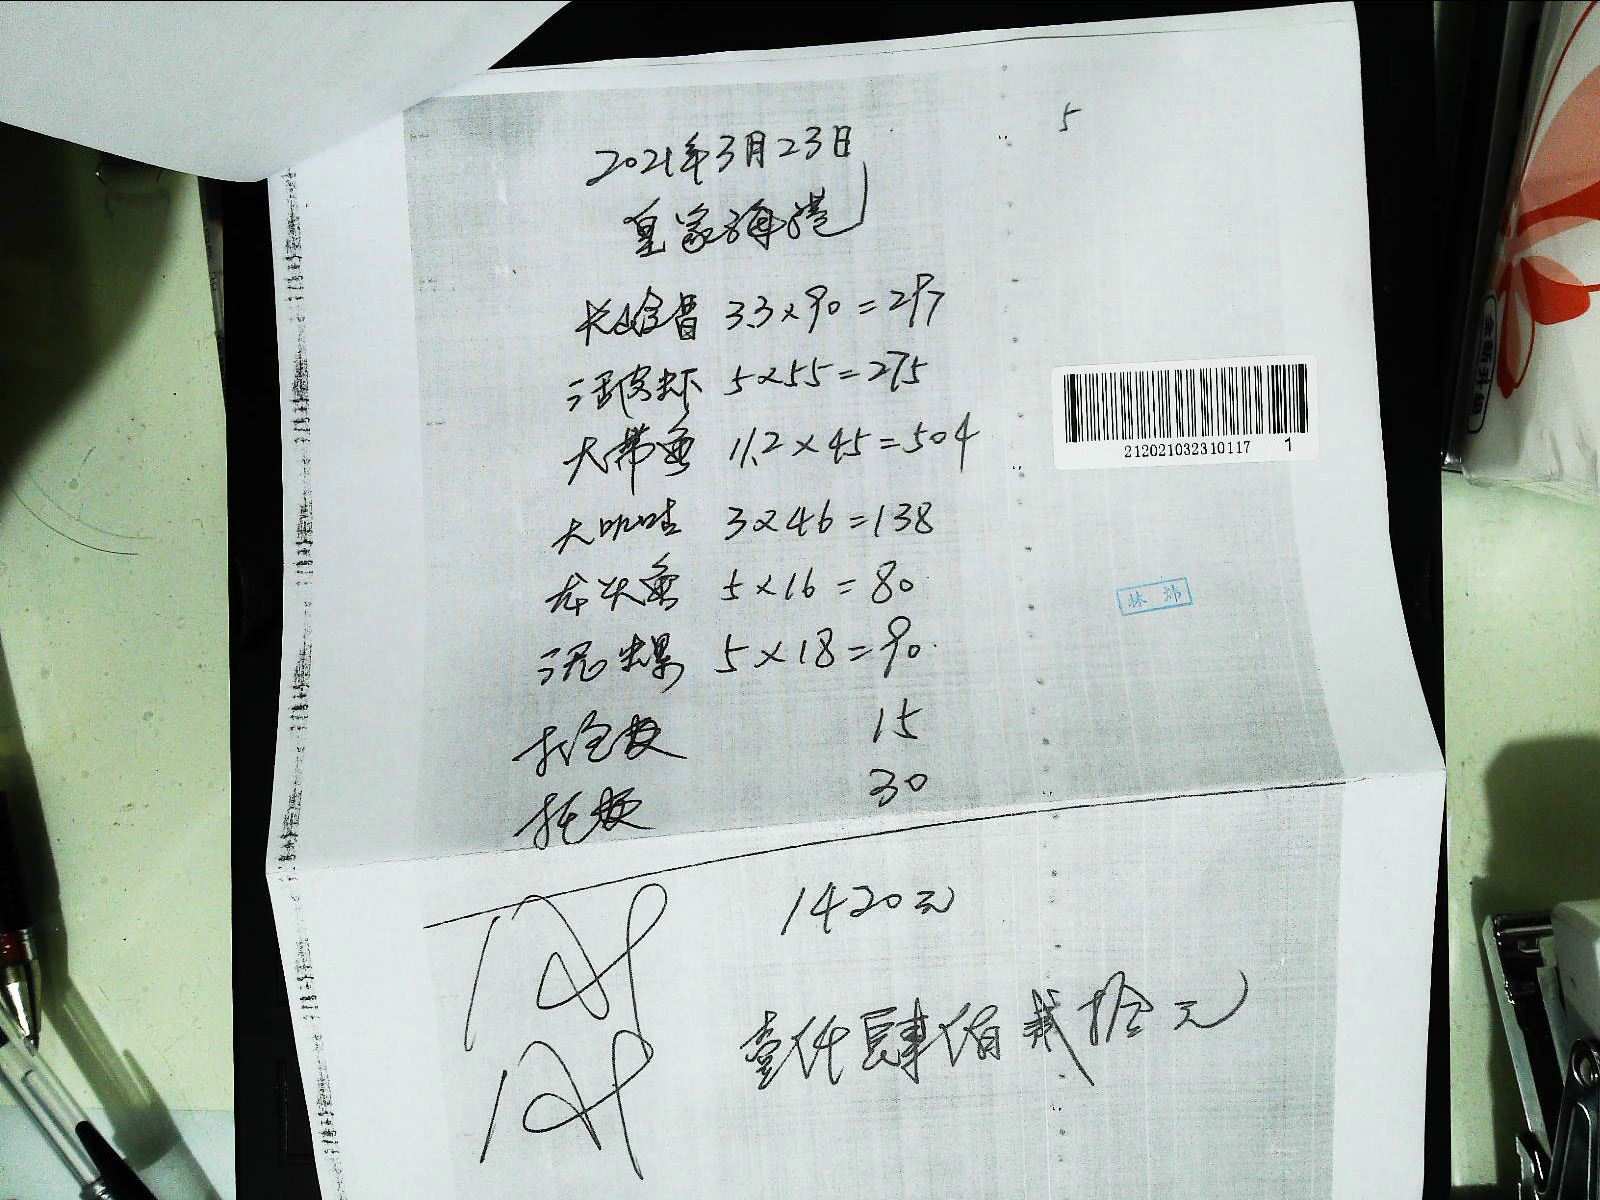 5
2021年3月23日
皇家海港
长蛤昔 3.3×90=297
活皮虾 5×55=275
大带鱼 11.2×45=504
212021032310117 1
大叽咕 3×46=138
龙头鱼 5×16=80
林炜
泥螺 5×18=90
15
30
1420元
壹仟肆佰贰拾元